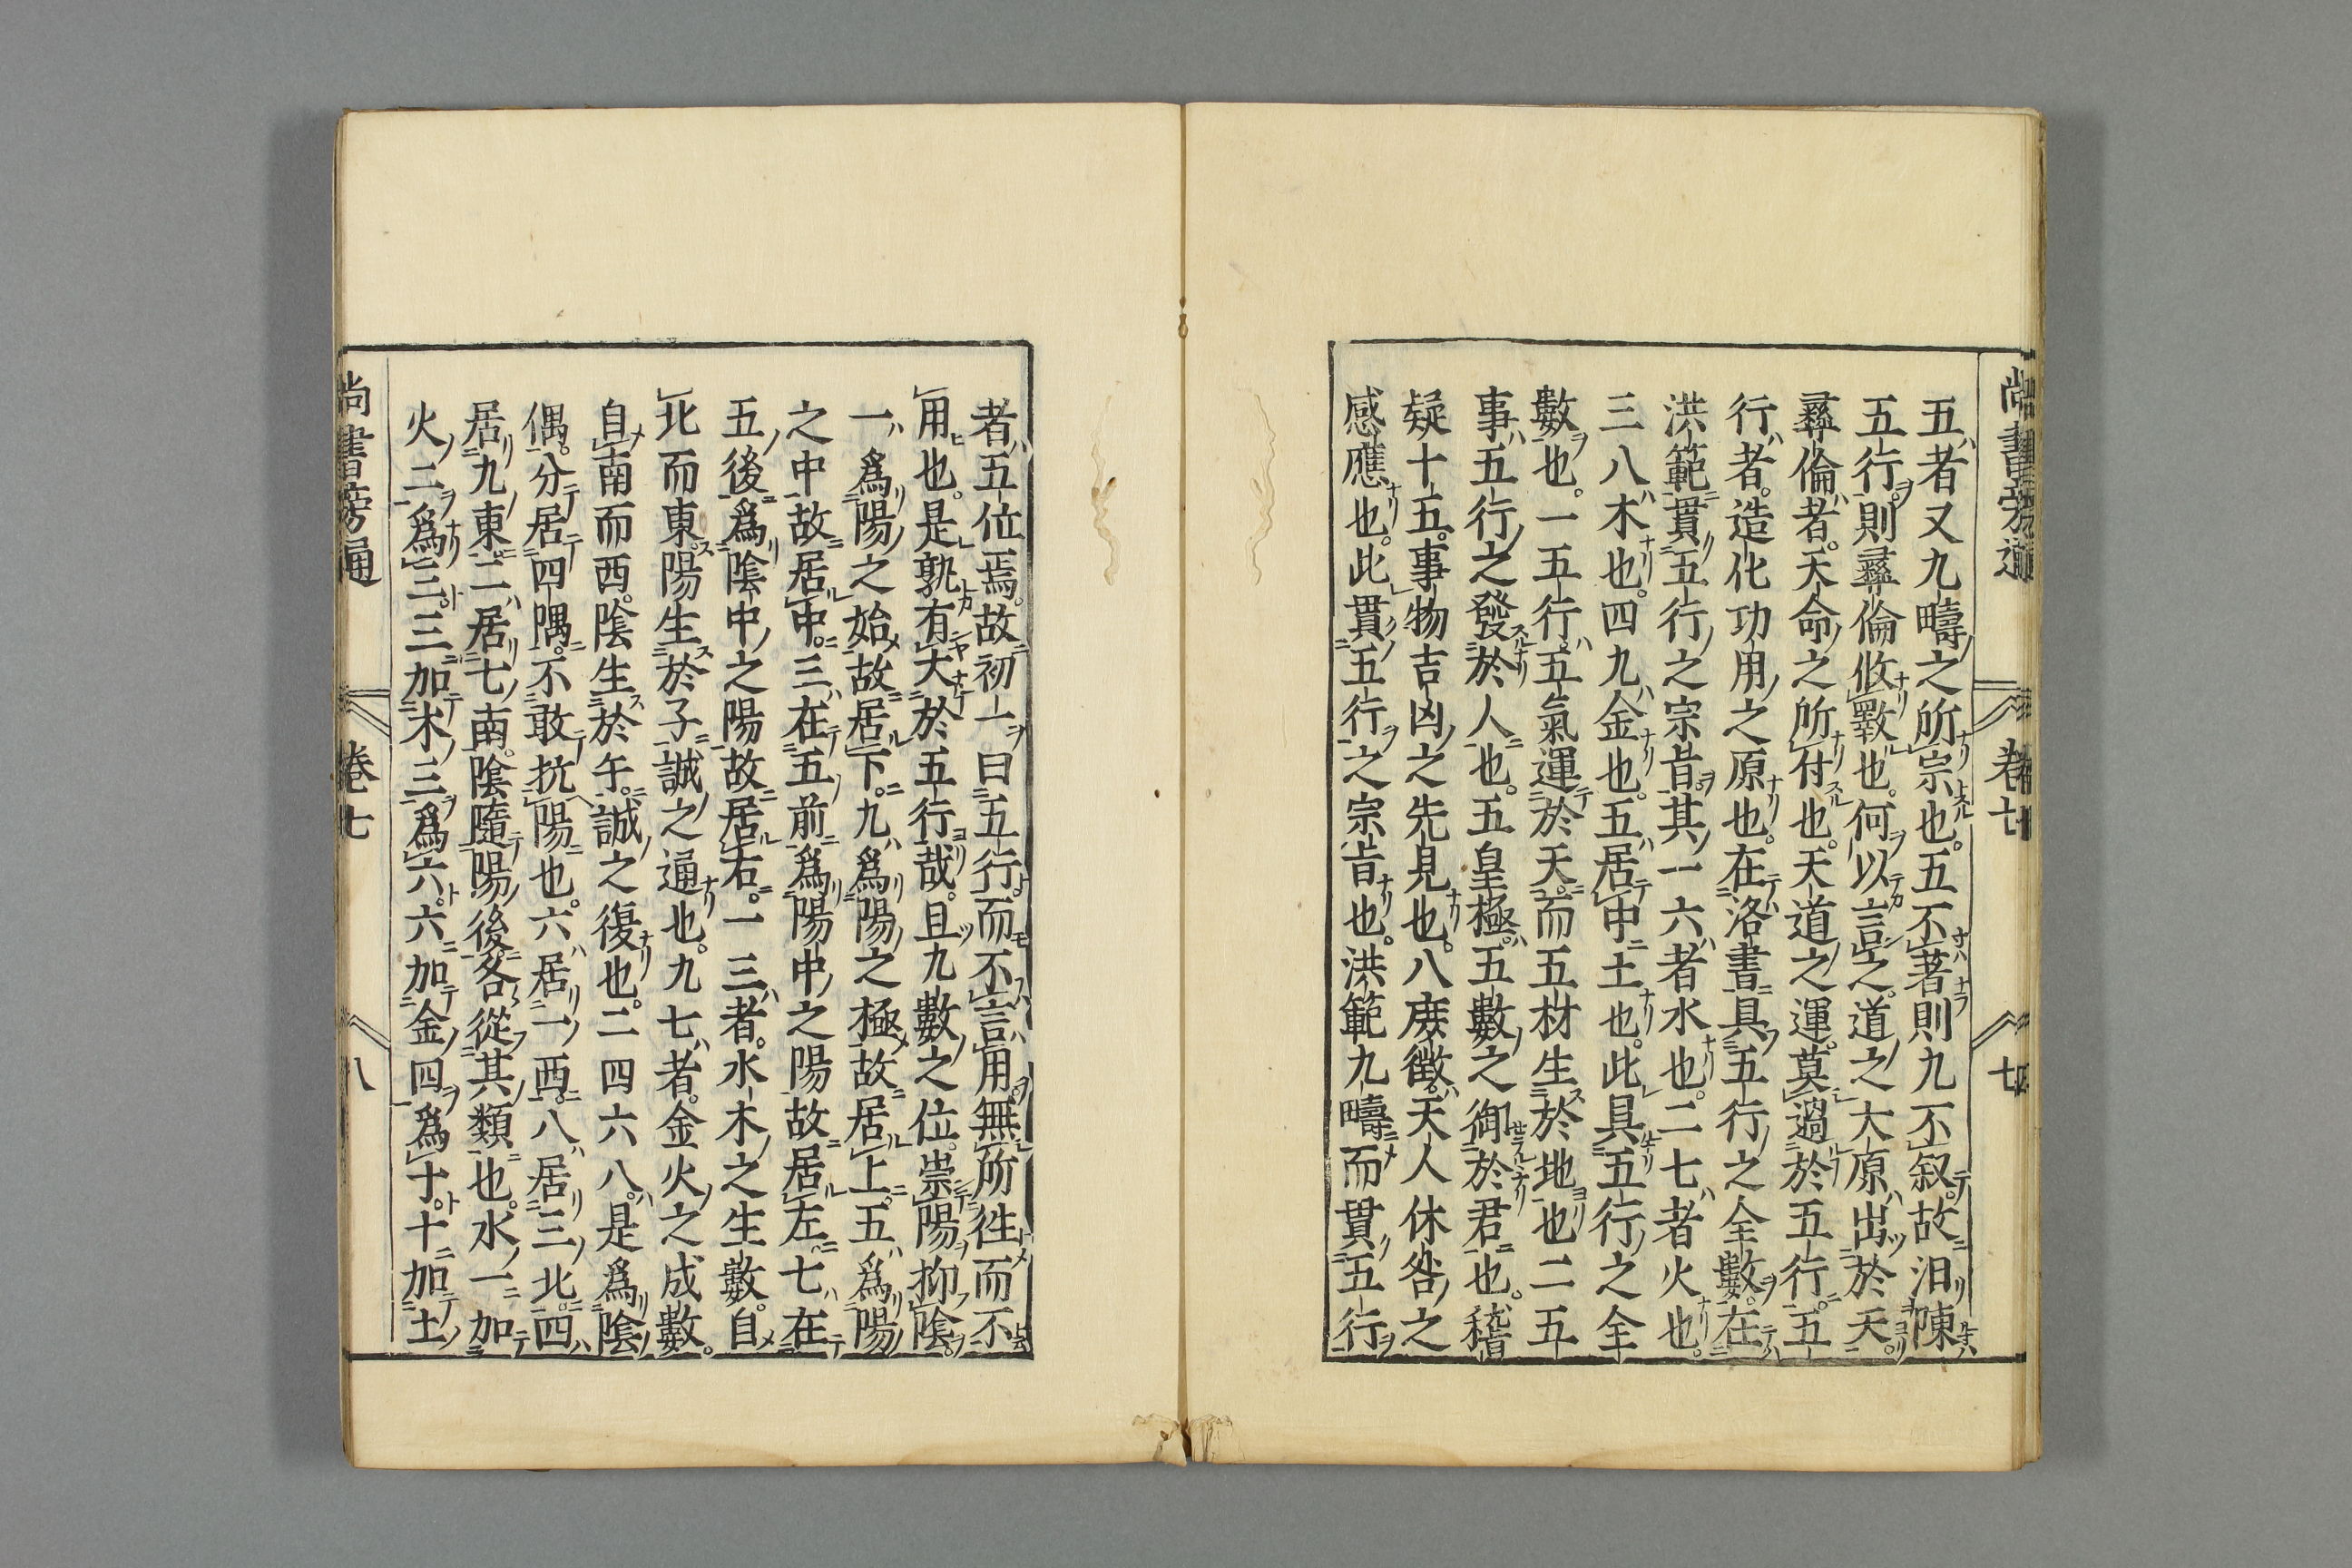 尚書旁通 卷七 七
五者又九疇之所宗也。五不著則九不叙。故汨陳
五行。則彛倫攸斁也。何以言之。道之大原出於天。
彛倫者。天命之所付也。天道之運。莫過於五行。五
行者。造化功用之原也。在洛書具五行之全數。在
洪範貫五行之宗旨。其一六者水也。二七者火也。
三八木也。四九金也。五居中土也。此具五行之全
數也。一五行。五氣運於天。而五材生於地也二五
事五行之發於人也。五皇極。五數之御於君也。稽
疑十五。事物吉凶之先見也。八庶徵。天人休咎之
感應也。此貫五行之宗旨也。洪範九疇而貫五行
者五位焉。故初一曰五行。而不言用。無所徃而不
用也。是孰有大於五行哉。且九數之位。崇陽抑陰。
一爲陽之始故居下。九爲陽之極故居上。五爲陽
之中故居中。三在五前爲陽中之陽故居左。七在
五後爲陰中之陽故居右。一三者。水木之生數。自
北而東。陽生於子。誠之通也。九七者。金火之成數。
自南而西。陰生於午。誠之復也。二四六八。是爲陰
偶。分居四隅。不敢抗陽也。六居一西。八居三北。四
居九東。二居七南。陰隨陽後各從其類也。水一加
火二爲三。三加木三爲六。六加金四爲十。十加土
尚書旁通 卷七 八